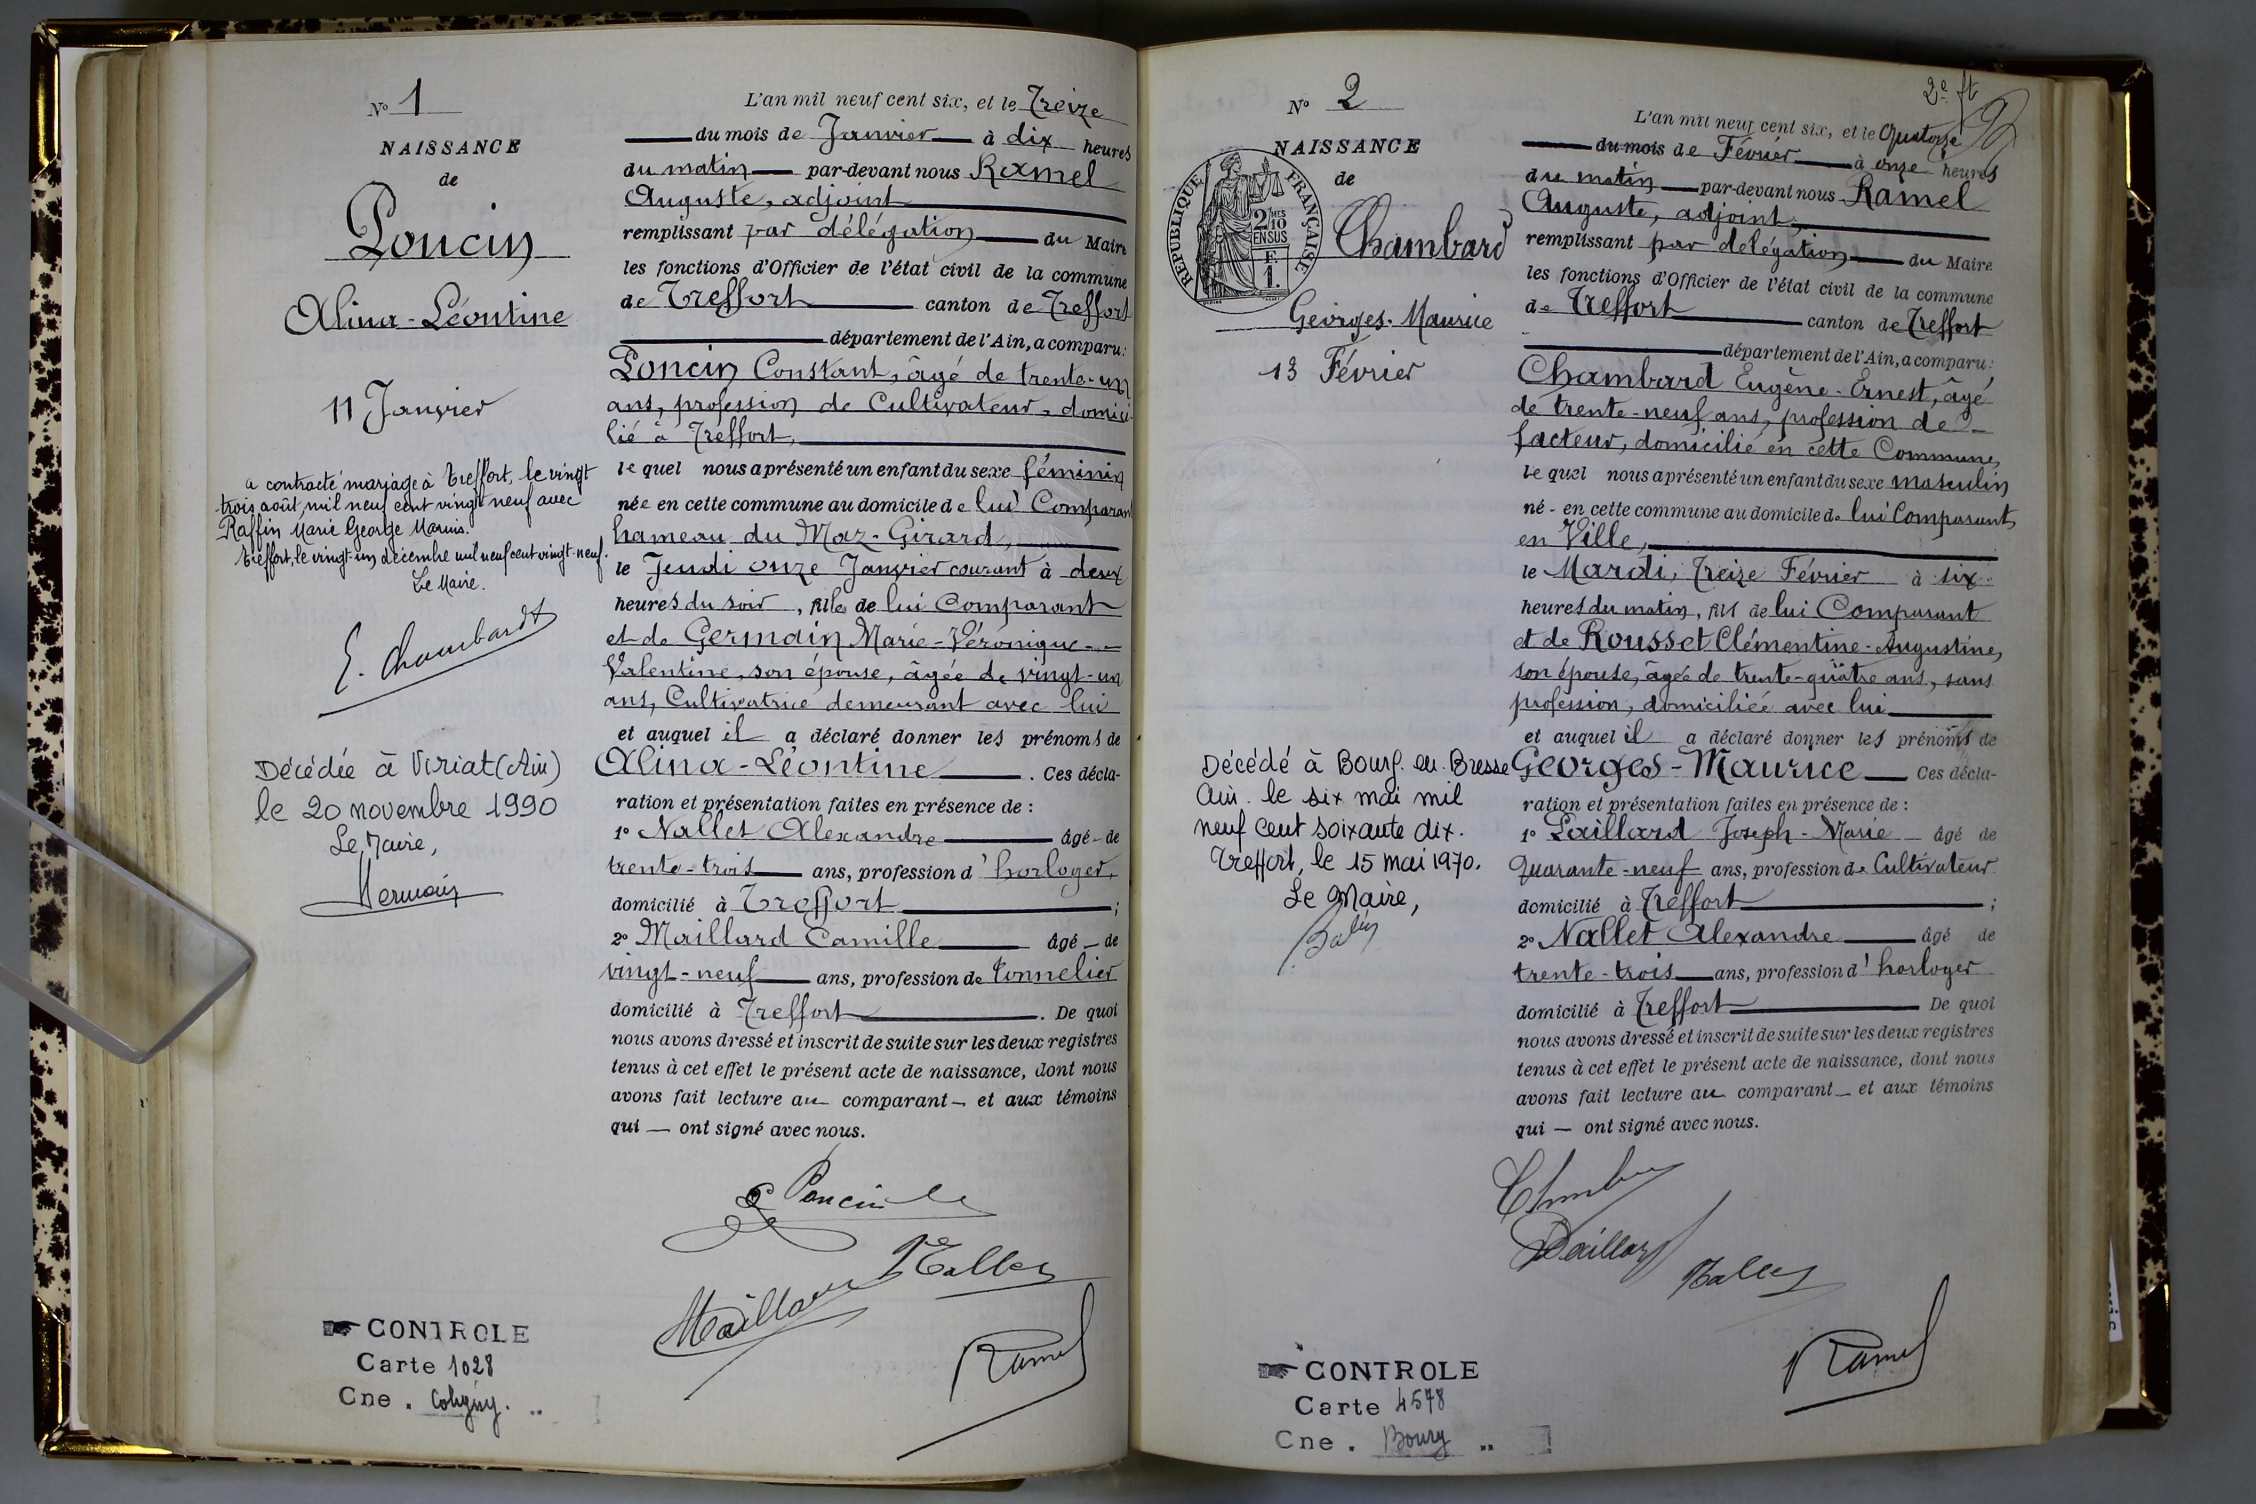 N° 1
NAISSANCE
de
Poncin
Alina-Léontine
11 Janvier
a contracté mariage à Treffort, le vingt
trois août mil neuf cent vingt neuf avec
Raffin Marie George Marius.
Treffort, le vingt-un décembre mil neuf cent vingt-neuf.
Le Maire.
E. Chambardt
Décédée à Viriat (Ain)
le 20 novembre 1990
Le Maire,
CONTROLE
Carte 1028
Cne. Coligny.
L'an mil neuf cent six, et le Treize
du mois de Janvier à dix heures
du matin par-devant nous Ramel
Auguste, adjoint
remplissant par délégation du Maire
les fonctions d'Officier de l'état civil de la commune
de Treffort canton de Treffort
département de l'Ain, a comparu:
Poncin Constant, âgé de trente-un
ans, profession de Cultivateur, domici-
lié à Treffort,
le quel nous a présenté un enfant du sexe féminin
née en cette commune au domicile de lui Comparant
hameau du Maz-Girard,
le Jeudi onze Janvier courant à deux
heures du soir, fille de lui Comparant
et de Germain Marie-Véronique-
Valentine, son épouse, âgée de vingt-un
ans, Cultivatrice demeurant avec lui
et auquel il a déclaré donner les prénoms de
Alina-Léontine. Ces décla-
ration et présentation faites en présence de :
1° Nallet Alexandre âgé de
trente-trois ans, profession d'horloger,
domicilié à Treffort ;
2° Maillard Camille âgé de
vingt-neuf ans, profession de tonnelier
domicilié à Treffort. De quoi
nous avons dressé et inscrit de suite sur les deux registres
tenus à cet effet le présent acte de naissance, dont nous
avons fait lecture au comparant et aux témoins
qui — ont signé avec nous.
Poncin
Nallet
Maillard
Ramel
2e ft
N° 2
NAISSANCE
de
RÉPUBLIQUE FRANÇAISE
2/10
EN SUS
F.
1.
Chambard
Georges-Maurice
13 Février
Décédé à Bourg-en-Bresse
Ain. le six mai mil
neuf cent soixante dix.
Treffort, le 15 mai 1970.
Le Maire,
CONTROLE
Carte 4578
Cne. Bourg
L'an mil neuf cent six, et le Quatorze
du mois de Février à onze heures
du matin par-devant nous Ramel
Auguste, adjoint,
remplissant par délégation du Maire
les fonctions d'Officier de l'état civil de la commune
de Treffort canton de Treffort
département de l'Ain, a comparu:
Chambard Eugène-Ernest, âgé
de trente-neuf ans, profession de
facteur, domicilié en cette Commune,
le quel nous a présenté un enfant du sexe masculin
né - en cette commune au domicile de lui Comparant
en Ville,
le Mardi, Treize Février à six
heures du matin, fils de lui Comparant
et de Rousset Clémentine-Augustine,
son épouse, âgée de trente-quatre ans, sans
profession, domiciliée avec lui
et auquel il a déclaré donner les prénoms de
Georges-Maurice Ces décla-
ration et présentation faites en présence de :
1° Paillard Joseph-Marie âgé de
Quarante-neuf ans, profession de Cultivateur
domicilié à Treffort ;
2° Nallet Alexandre âgé de
trente-trois ans, profession d'horloger
domicilié à Treffort De quoi
nous avons dressé et inscrit de suite sur les deux registres
tenus à cet effet le présent acte de naissance, dont nous
avons fait lecture au comparant et aux témoins
qui — ont signé avec nous.
Paillard
Nallet
Ramel